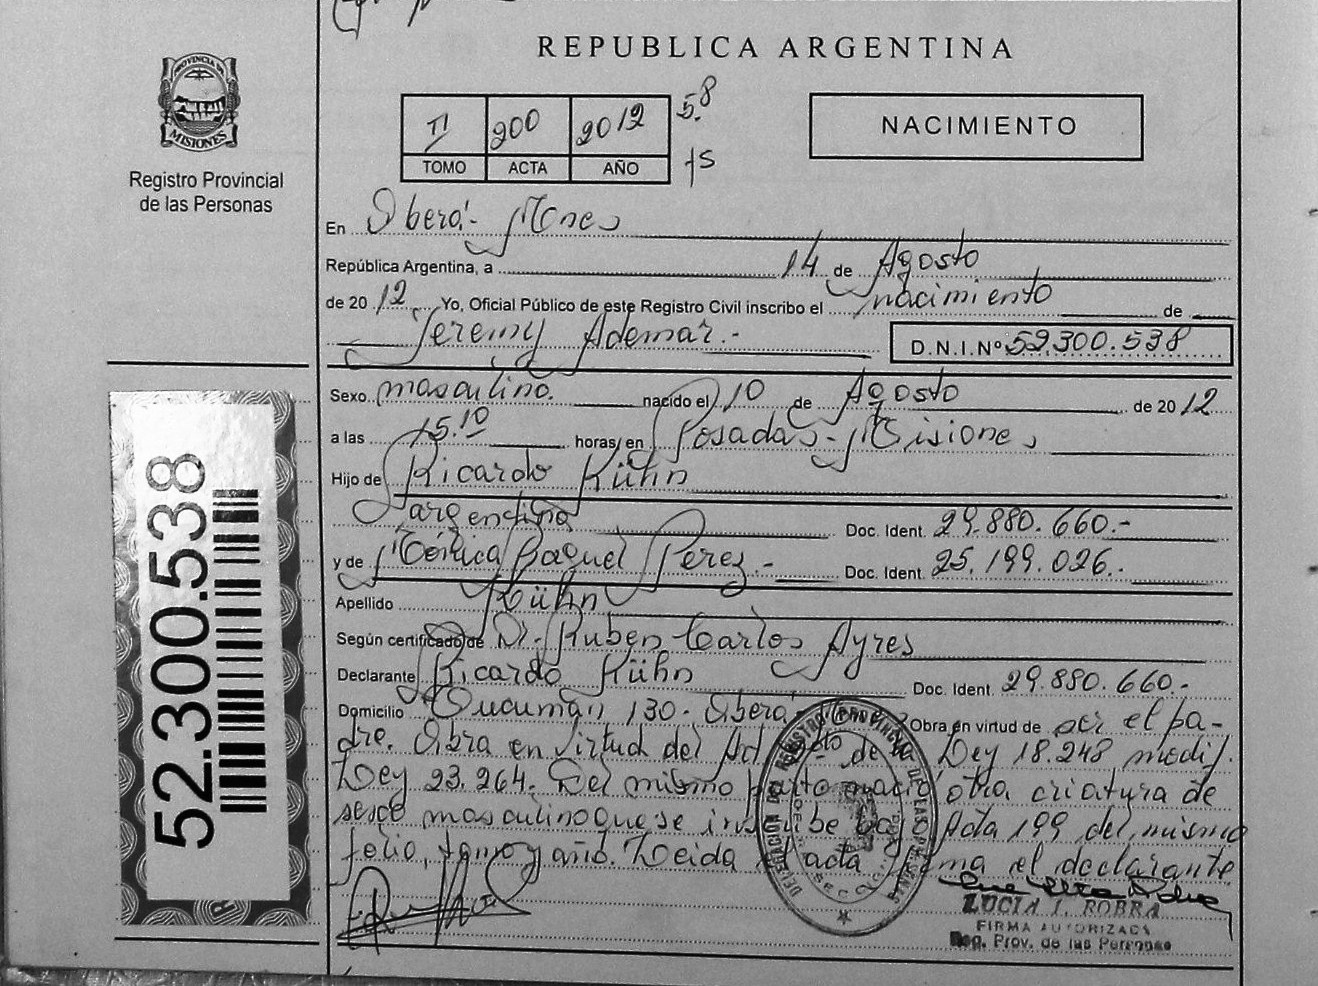 REPUBLICA ARGENTINA
PROVINCIA DE
MISIONES
Registro Provincial
de las Personas
II 200 2012 58
TOMO ACTA AÑO 15
NACIMIENTO
En Oberá - Mnes
República Argentina, a 14 de Agosto
de 20 12 Yo, Oficial Público de este Registro Civil inscribo el nacimiento de
Jeremy Ademar.-
D.N.I.Nº 52.300.538
Sexo masculino. nacido el 10 de Agosto de 20 12
a las 15.10 horas, en Posadas - Misiones
Hijo de Ricardo Kühn
argentina Doc. Ident. 29.880.660.-
y de Mónica Raquel Perez.- Doc. Ident. 25.199.026.-
Apellido Kühn
Según certificado de Dr. Ruben Carlos Ayres
Declarante Ricardo Kühn Doc. Ident. 29.880.660.-
Domicilio Tucumán 130 - Oberá Obra en virtud de ser el pa-
dre. Obra en virtud del de Ley 18.248 modif.
Ley 23.264. Del mismo parto nació otra criatura de
sexo masculino que se inscribe bajo Acta 199 del mismo
folio, tomo y año. Leida el acta firma el declarante
52.300.538
DELEGACION DEL REGISTRO PROVINCIAL DE LAS PERSONAS
LUCIA I. ROBRA
FIRMA AUTORIZADA
Reg. Prov. de las Personas